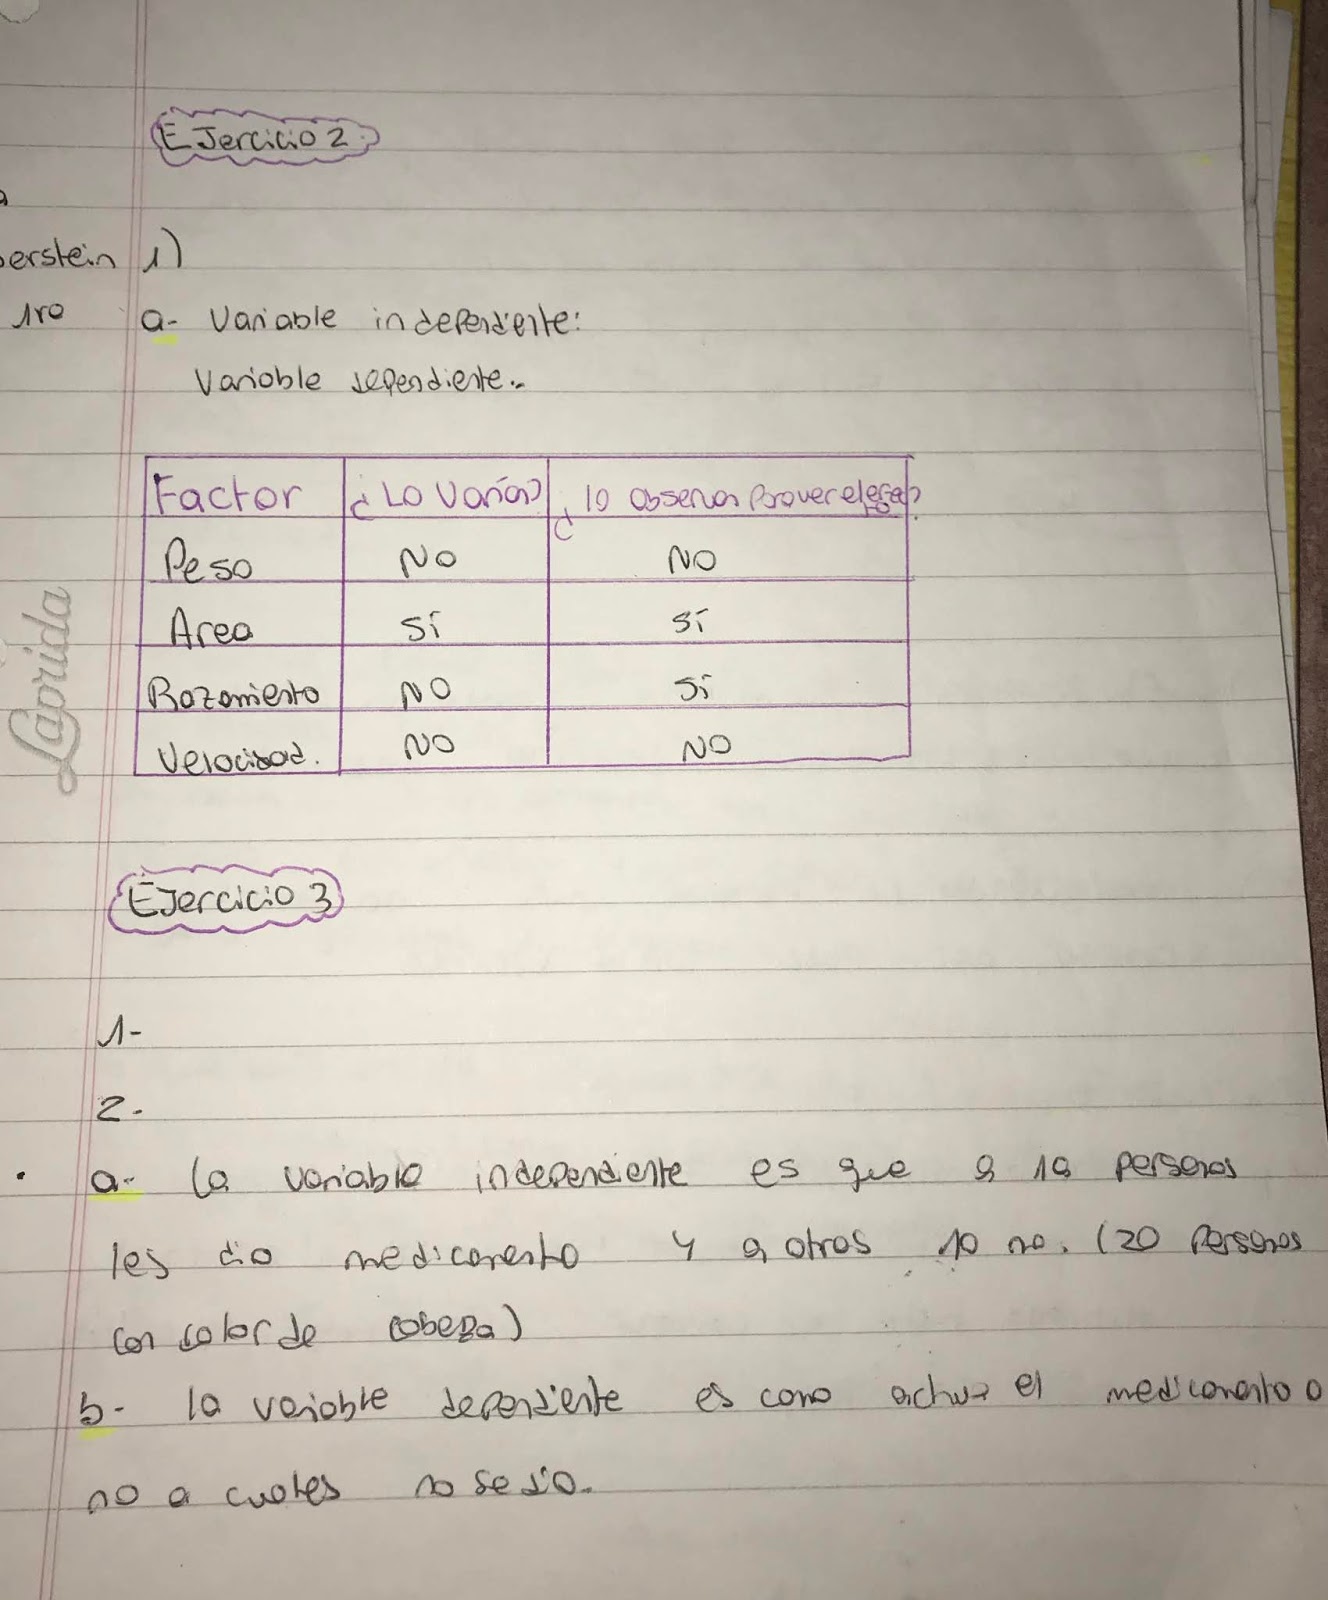 Ejercicio 2
a
erstein
1ro
1)
a- Variable independiente:
Variable dependiente..
Factor ¿Lo varía? ¿lo observa para ver el efecto?
Peso NO NO
Area Sí Sí
Rozamiento NO Sí
Velocidad. NO NO
Laprida
Ejercicio 3
1-
2-
a- La variable independiente es que a 10 personas
les dio medicamento y a otros 10 no. (20 personas
con dolor de cabeza)
b- la variable dependiente es como actua el medicamento o
no a cuales no se dio.